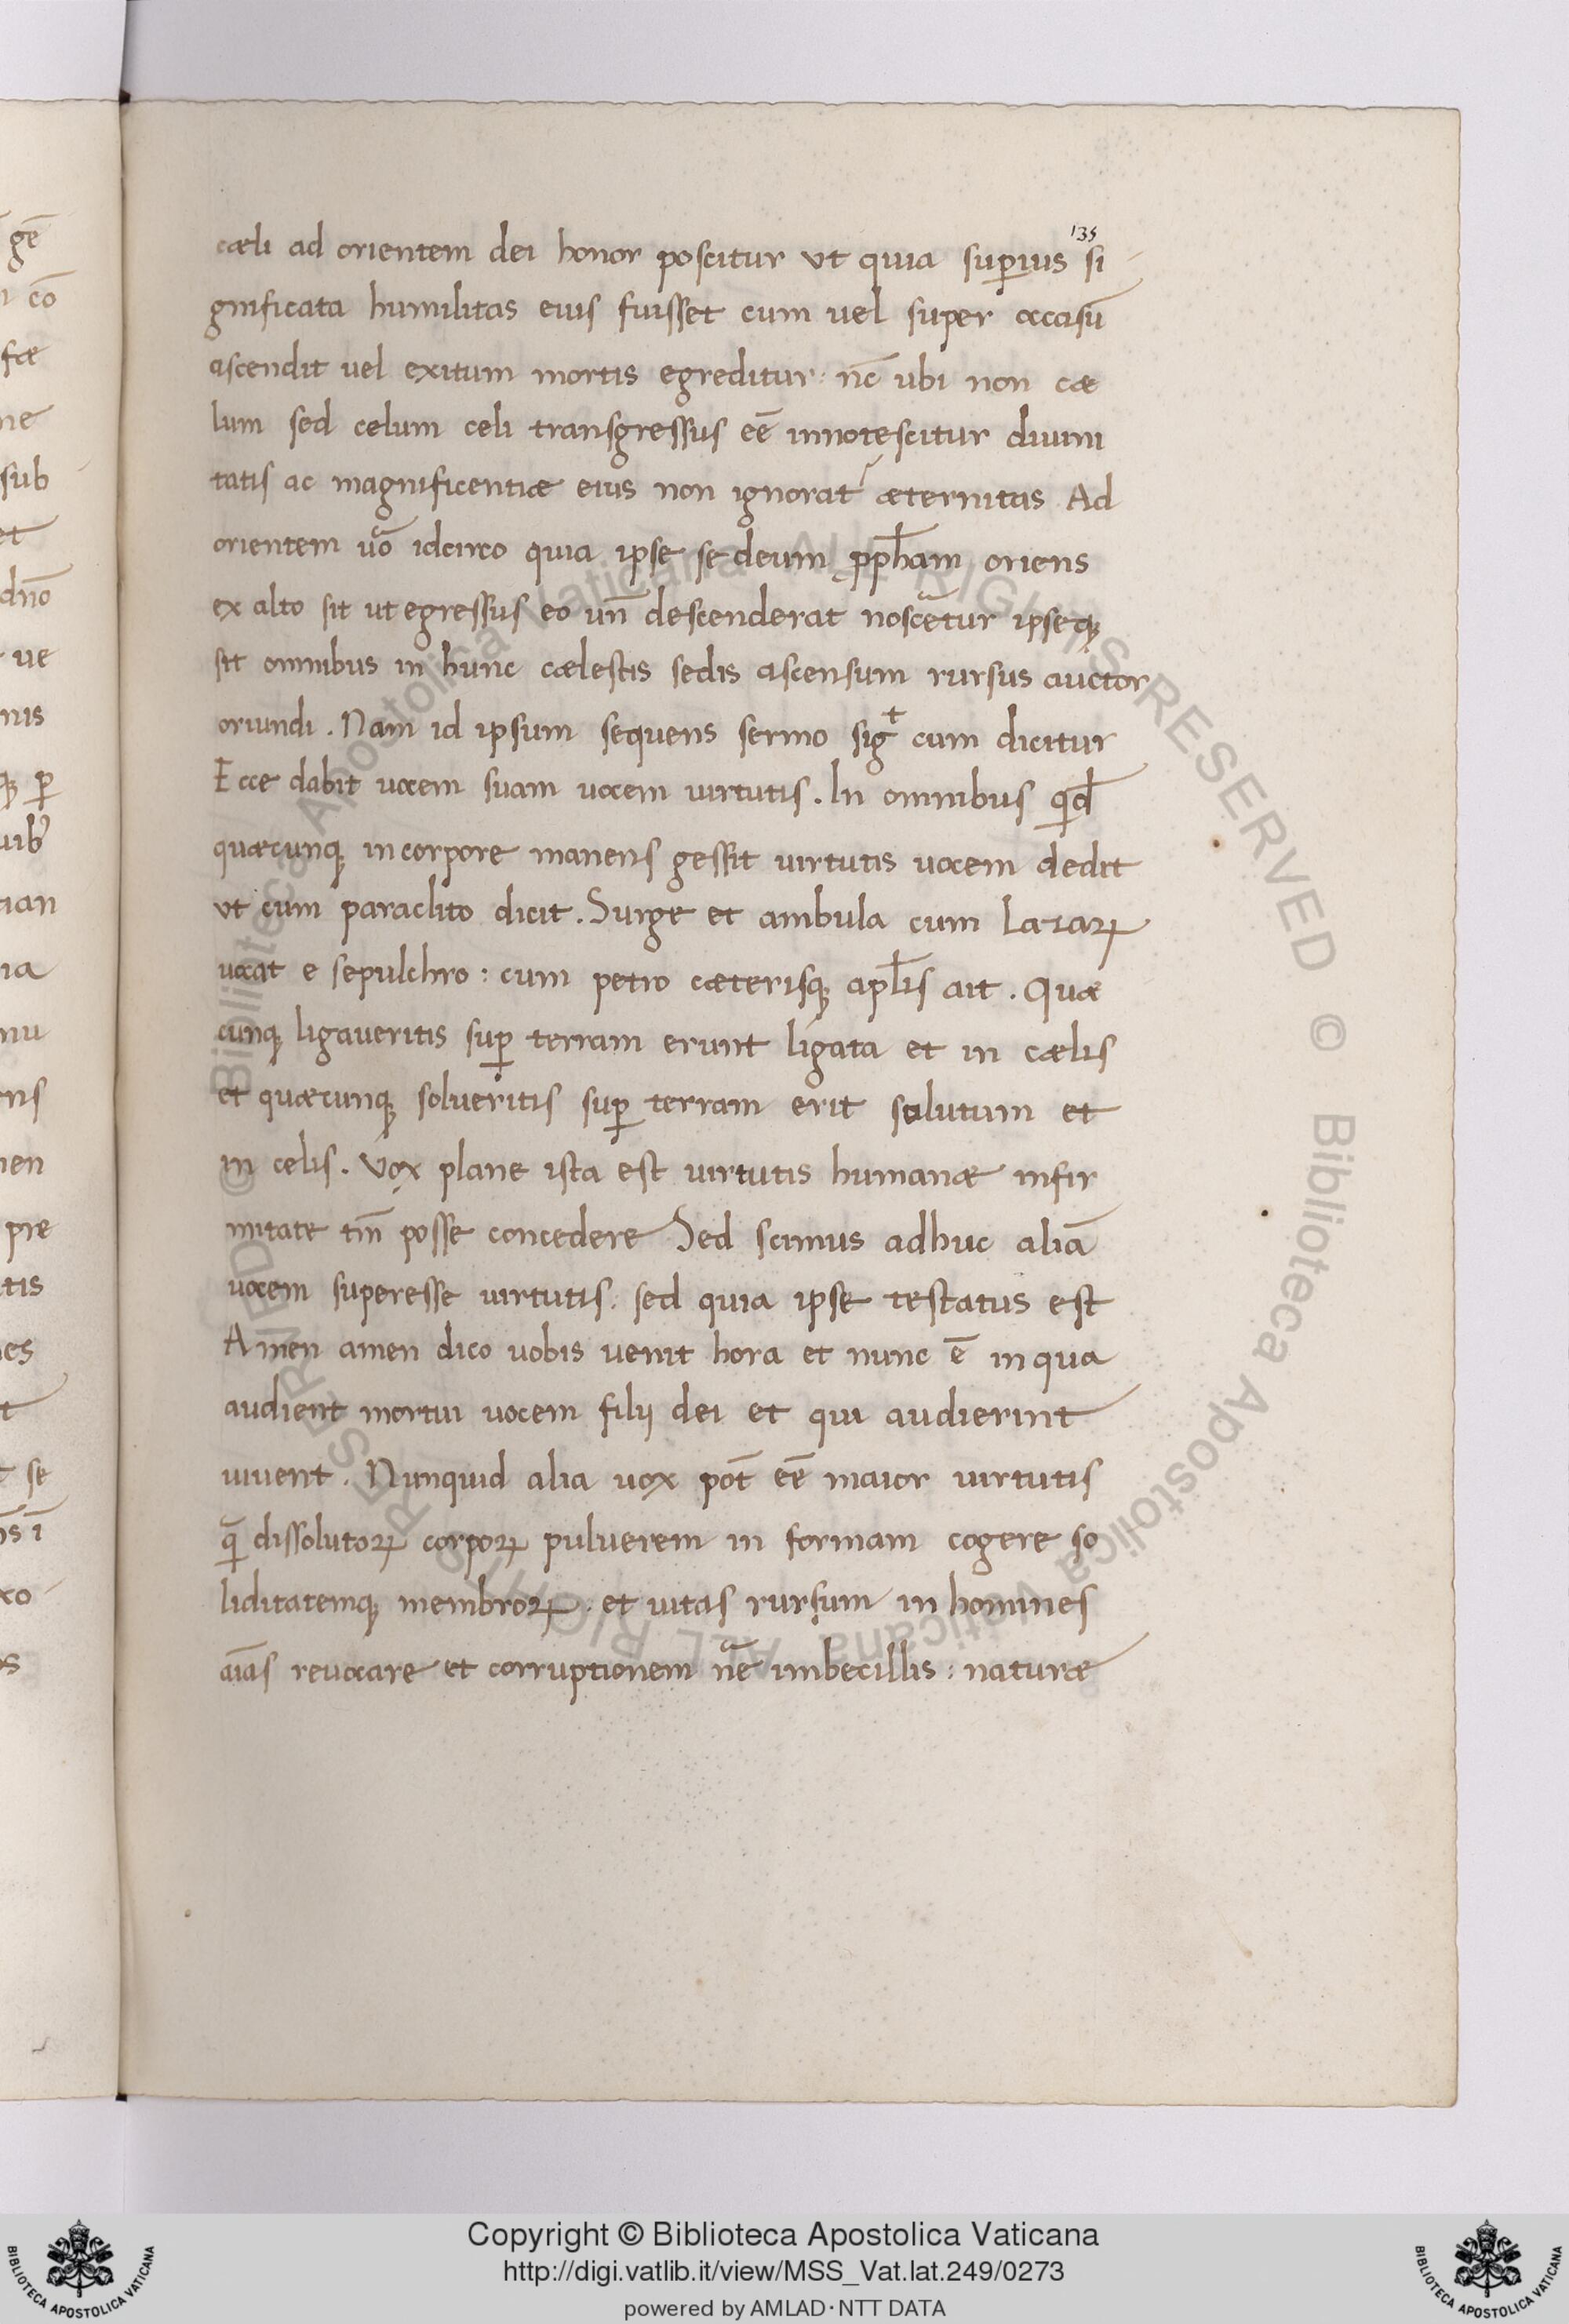 135
cæli ad orientem dei honor poscitur ut quia suꝑius si
gnificata humilitas eius fuisset cum uel super occasū
ascendit uel exitum mortis egreditur : nc̄ ubi non cæ
lum sed celum celi transgressus eē innotescitur diuini
tatis ac magnificentiæ eius non ignorat͛ æternitas Ad
orientem uͦo idcirco quia ipse se deum ꝓph̄am oriens
ex alto sit ut egressus eo un̄ descenderat noscētur ipseqꝫ
sit omnibus in hunc cælestis sedis ascensum rursus auctor
oriundi . Nam id ipsum sequens sermo sigᵗ cum dicitur
Ecce dabit uocem suam uocem uirtutis . In omnibus qͥd̄
quæcunqꝫ in corpore manens gessit uirtutis uocem dedit
ut cum paraclito dicit . Surge et ambula cum Lazaꝝ
uocat e sepulchro : cum petro cæterisqꝫ apl̄is ait . Quæ
cunqꝫ ligaueritis suꝑ terram erunt ligata et in cælis
et quæcunqꝫ solueritis suꝑ terram erit solutum et
in celis . Vox plane ista est uirtutis humanæ infir
mitate tm̄ posse concedere Sed scimus adhuc aliā
uocem superesse uirtutis : sed quia ipse testatus est
Amen amen dico uobis uenit hora et nunc ē in qua
audient mortui uocem filij dei et qui audierint
uiuent . Nunquid alia uox pōt eē maior uirtutis
qᷓ dissolutoꝝ corpoꝝ puluerem in formam cogere so
liditatemqꝫ membroꝝ : et uitas rursum in homines
aīas reuocare et corruptionem nr̄e imbecillis : naturæ
gē
cō
fæ
ne
sub
et
dn̄o
ue
nis
qꝫ ꝑ
ia
nu
ns
pre
tis
se
Copyright © Biblioteca Apostolica Vaticana
http://digi.vatlib.it/view/MSS_Vat.lat.249/0273
powered by AMLAD·NTT DATA
BIBLIOTECA APOSTOLICA VATICANA
BIBLIOTECA APOSTOLICA VATICANA
Biblioteca Apostolica Vaticana ALL RIGHTS RESERVED © Biblioteca Apostolica Vaticana ALL RIGHTS RESERVED ©